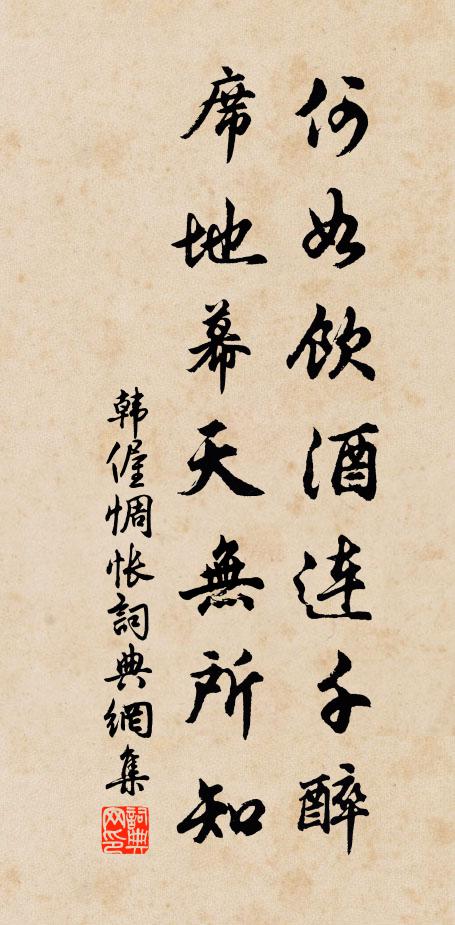 何如飲酒連千醉
席地幕天無所知
韩偓惆怅詞典網集
詞典网印